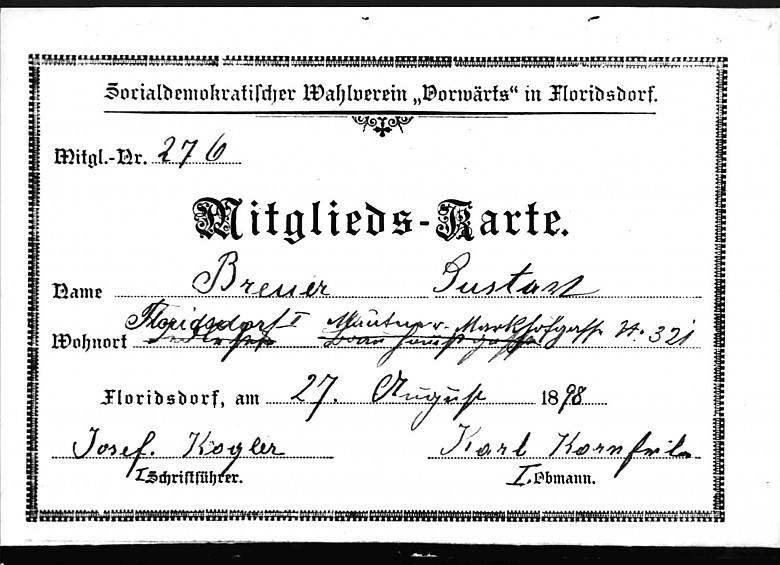 Socialdemokratischer Wahlverein „Vorwärts“ in Floridsdorf.
Mitgl.-Nr. 276
Mitglieds-Karte.
Name Breuer Gustav
Wohnort Floridsdorf I Mautner-Markhofgasse N. 321
Floridsdorf, am 27. August 1898
Josef Kogler Karl Kornfeil
I Schriftführer. I. Obmann.